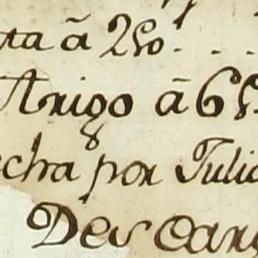 ta ã 2
Trigo ã 65
echa por Julio
Descar